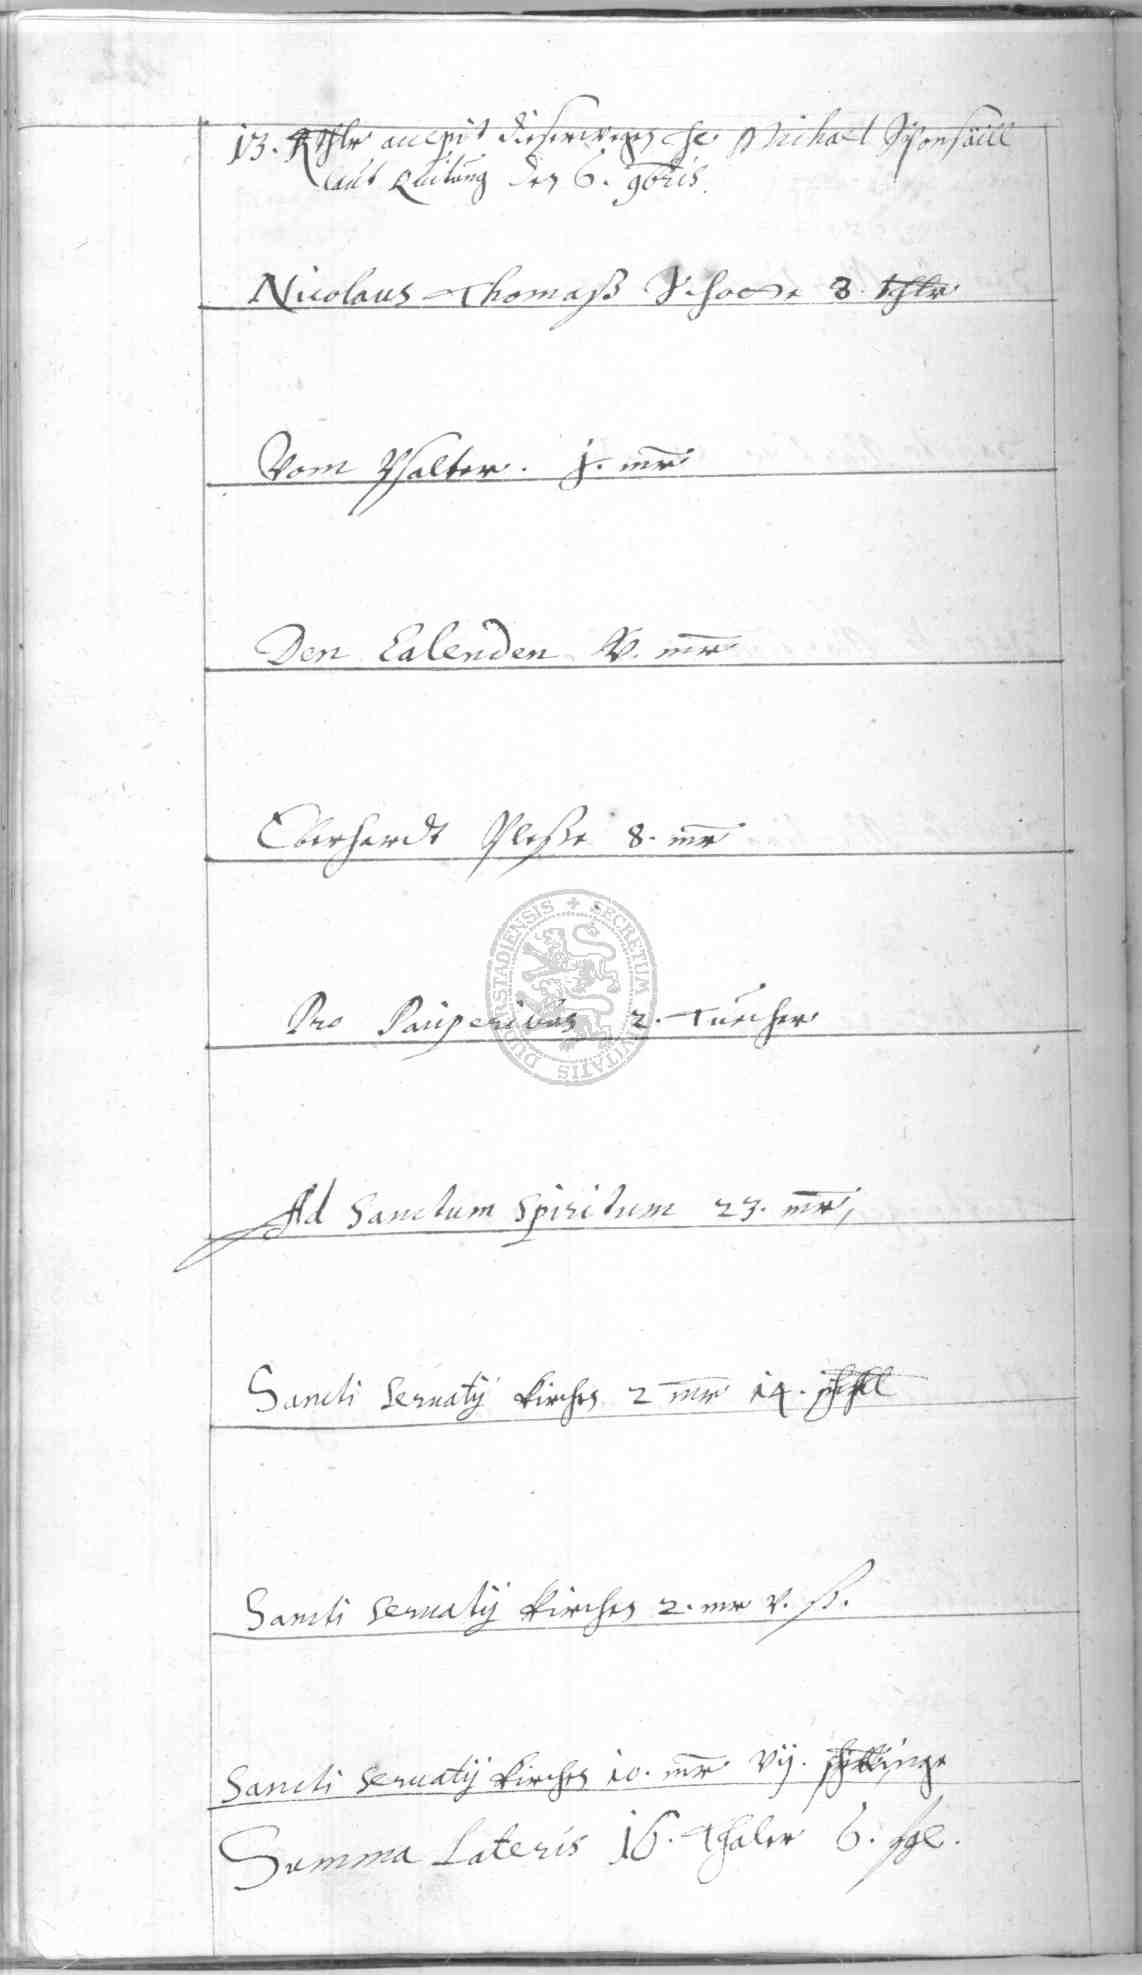 13. Rthlr accepit dieserwegen He Michael
laut Quitung den 6. 9bris.
Nicolaus Thomaß 3. thlr
Vom Psalter. j. mr
Den Calenden V. mr
Eberhardt Plesse 8. mr
Pro Pauperibus 2. Tuecher
Ad Sanctum Spiritum 23. mr,
Sancti Seruatij kirchen 2 mr 14. schill
Sancti Seruatij kirchen 2. mr v. ß.
Sancti Seruatij kirchen 10. mr vij. schillinge
Summa Lateris 16. Thaler 6. sgl.
SECRETUM CIVITATIS DUDERSTADIENSIS